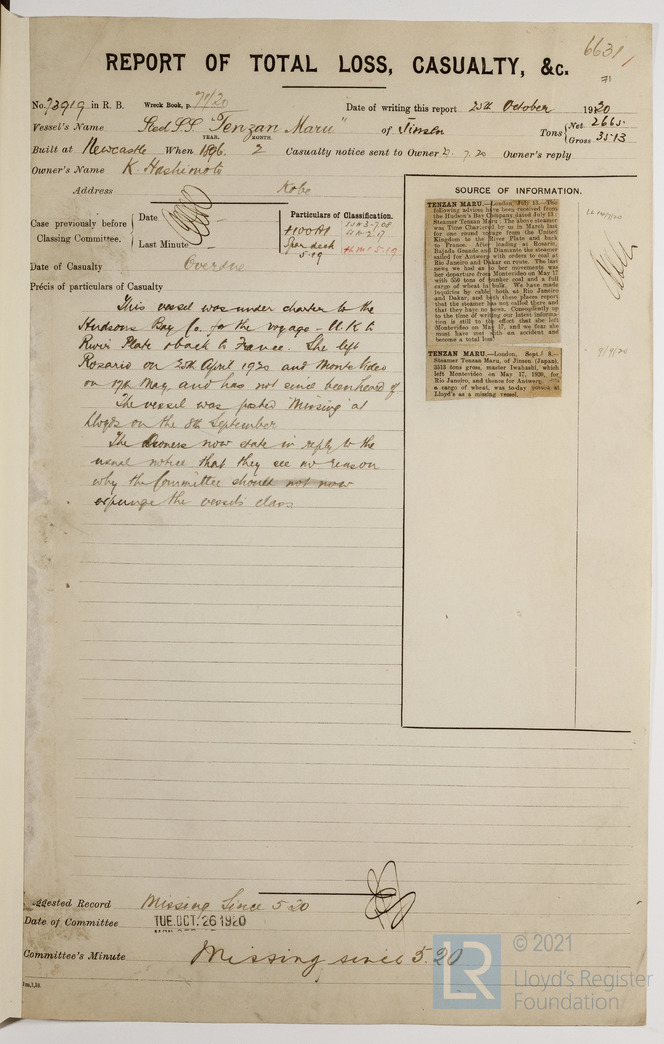 6631
71
REPORT OF TOTAL LOSS, CASUALTY, &c.
No. 73919 in R. B. Wreck Book, p. 71/20 Date of writing this report 25th October 1920
Vessel's Name Steel SS "Tenzan Maru" of Jinsen Tons Net 2665
Gross 3513
YEAR. MONTH.
Built at Newcastle When 1896. 2 Casualty notice sent to Owner 7.20 Owner's reply
Owner's Name K Hashimoto
Address Kobe
Case previously before Classing Committee. Date
Last Minute
Particulars of Classification.
+100A1
Spar deck
5.19
Date of Casualty Overdue
Précis of particulars of Casualty
This vessel was under charter to the
Hudsons Bay Co. for the voyage - U.K. to
River Plate & back to France. She left
Rosario on 25th April 1920 and Monte Video
on 17th May and has not since been heard of
The vessel was posted "Missing" at
Lloyds on the 8th September
The Owners now state in reply to the
usual notice that they see no reason
why the Committee should not now
expunge the vessels class
SOURCE OF INFORMATION.
TENZAN MARU.—London, July 13.—The
following advices have been received from
the Hudson's Bay Company dated July 13:
Steamer Tenzan Maru: The above steamer
was Time Chartered by us in March last
for one round voyage from the United
Kingdom to the River Plate and back
to France. After loading at Rosario,
Bajada Grande and Diamante the steamer
sailed for Antwerp with orders to coal at
Rio Janeiro and Dakar en route. The last
news we had as to her movements was
her departure from Montevideo on May 17
with 550 tons of bunker coal and a full
cargo of wheat in bulk. We have made
inquiries by cable both at Rio Janeiro
and Dakar, and both these places report
that the steamer has not called there and
that they have no news. Consequently up
to the time of writing our latest informa-
tion is still to the effect that she left
Montevideo on May 17, and we fear she
must have met with an accident and
become a total loss.
TENZAN MARU.—London, Sept. 8.—
Steamer Tenzan Maru, of Jinsen (Japan),
3513 tons gross, master Iwahashi, which
left Montevideo on May 17, 1920, for
Rio Janeiro, and thence for Antwerp,
a cargo of wheat, was to-day posted at
Lloyd's as a missing vessel.
9/9/20
Suggested Record Missing Since 5.20
Date of Committee TUE. OCT. 26 1920
Committee's Minute Missing since 5.20
© 2021
LR
Lloyd's Register
Foundation